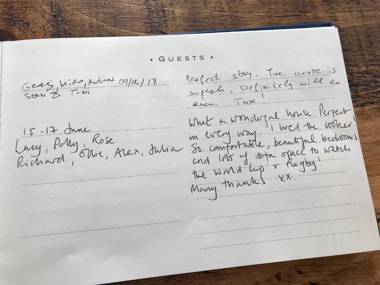 • GUESTS •
09/06/18
Perfect stay. The house is
superb. Definitely will be
What a wonderful house. Perfect
in every way. I loved the cooker!
So comfortable, beautiful bedrooms
and lots of sofa space to watch
the world cup + rugby!
Many thanks xx.
15-17 June
Lucy, Polly, Rose
Richard, Ollie, Alex, Julia